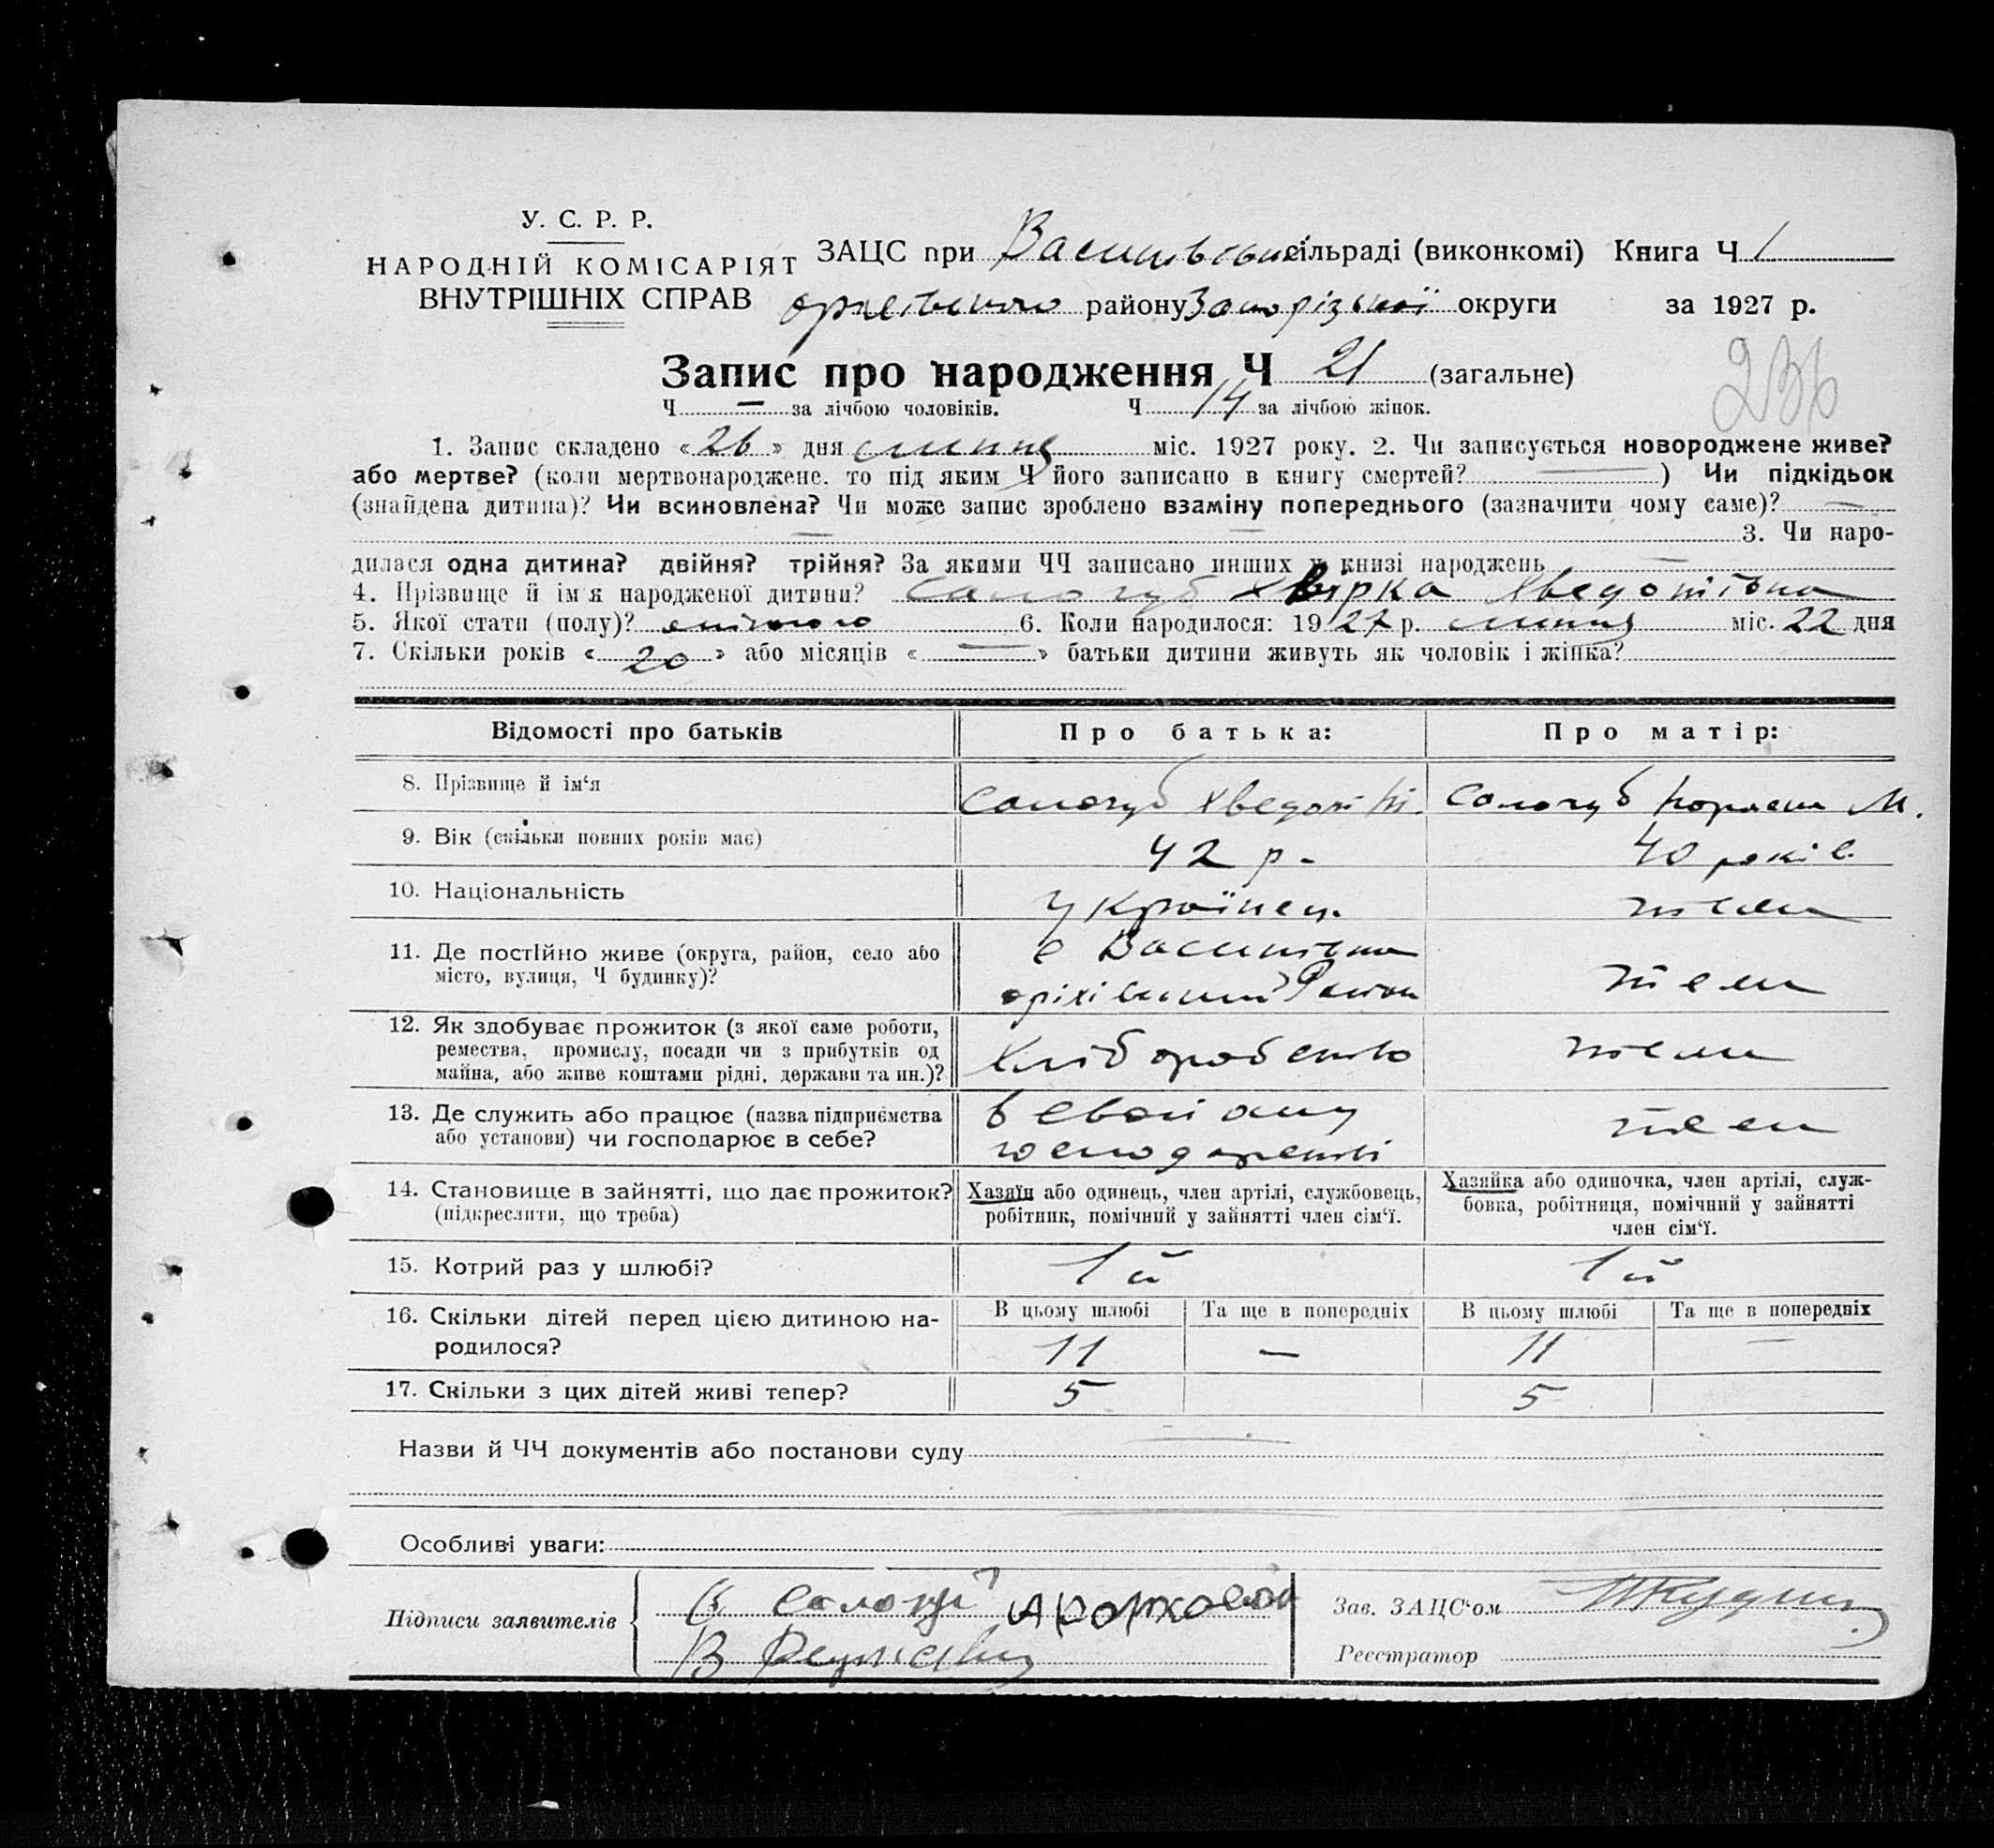 У. С. Р. Р.
НАРОДНІЙ КОМІСАРІЯТ
ВНУТРІШНІХ СПРАВ
ЗАЦС при Василівській сільраді (виконкомі) Книга Ч 1
району Запорізької округи за 1927 р.
Запис про народження Ч 21 (загальне)
236
Ч — за лічбою чоловіків. Ч 14 за лічбою жінок.
1. Запис складено «26» дня липня міс. 1927 року. 2. Чи записується новороджене живе?
або мертве? (коли мертвонароджене, то під яким Ч його записано в книгу смертей? — ) Чи підкідьок
(знайдена дитина)? Чи всиновлена? Чи може запис зроблено взаміну попереднього (зазначити чому саме)? —
— — 3. Чи наро-
дилася одна дитина? двійня? трійня? За якими ЧЧ записано инших у книзі народжень —
4. Прізвище й ім'я народженої дитини? Сологуб Хведотівна
5. Якої стати (полу)? жіночого 6. Коли народилося: 1927 р. липня міс. 22 дня
7. Скільки років «20» або місяців « — » батьки дитини живуть як чоловік і жінка?
Відомості про батьків
Про батька:
Про матір:
8. Прізвище й ім'я
Сологуб Хведот
Сологуб М.
9. Вік (скільки повних років має)
42 р.
40 років
10. Національність
Українец.
тоже
11. Де постійно живе (округа, район, село або
місто, вулиця, Ч будинку)?
с Василівка
оріхівський Район
12. Як здобуває прожиток (з якої саме роботи,
ремества, промислу, посади чи з прибутків од
майна, або живе коштами рідні, держави та ин.)?
Хліборобство
13. Де служить або працює (назва підприємства
або установи) чи господарює в себе?
в своїому
господарстві
14. Становище в зайнятті, що дає прожиток?
(підкреслити, що треба)
Хазяїн або одинець, член артілі, службовець,
робітник, помічний у зайнятті член сім'ї.
Хазяйка або одиночка, член артілі, служ-
бовка, робітниця, помічний у зайнятті
член сім'ї.
15. Котрий раз у шлюбі?
1й
1й
16. Скільки дітей перед цією дитиною на-
родилося?
В цьому шлюбі Та ще в попередніх В цьому шлюбі Та ще в попередніх
11 — 11 —
17. Скільки з цих дітей живі тепер?
5 5
Назви й ЧЧ документів або постанови суду
Особливі уваги:
Підписи заявителів
Зав. ЗАЦС'ом
Реєстратор